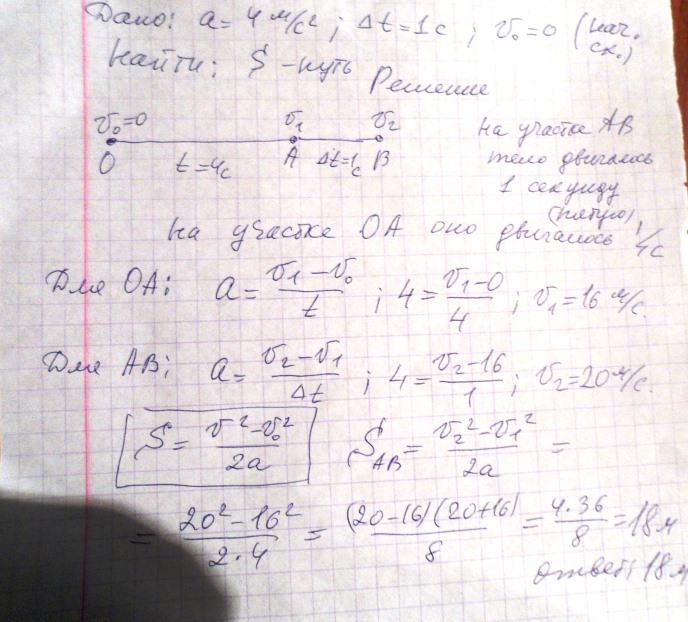 Дано: a = 4 м/с² ; Δt = 1с ; v₀ = 0 (нач. ск.)
Найти: S - путь
Решение
v₀=0 v₁ v₂
O t=4с A Δt=1с B
на участке АВ
тело двигалось
1 секунду
(пятую)
на участке ОА оно двигалось 4с
Для ОА: a = (v₁ - v₀)/t ; 4 = (v₁ - 0)/4 ; v₁ = 16 м/с.
Для АВ: a = (v₂ - v₁)/Δt ; 4 = (v₂ - 16)/1 ; v₂ = 20 м/с.
S = (v² - v₀²)/2a S_AB = (v₂² - v₁²)/2a =
= (20² - 16²)/(2·4) = (20-16)(20+16)/8 = 4·36/8 = 18м
ответ: 18м